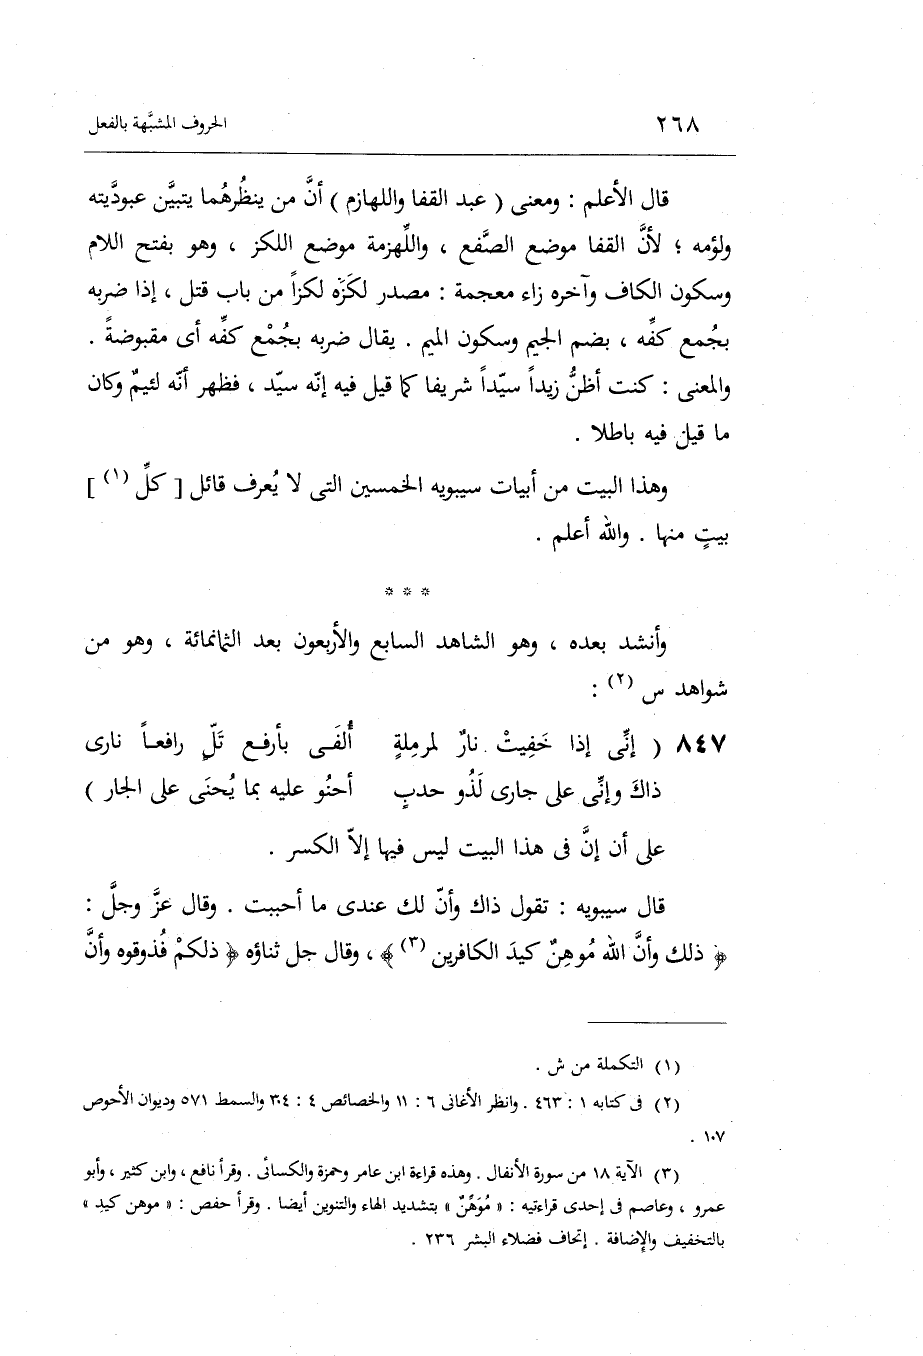 ٢٦٨
الحروف المشبَّهة بالفعل
قال الأعلم : ومعنى ( عبد القفا واللهازم ) أنَّ من ينظُرهُما يتبيَّن عبودَّيته
ولؤمه ؛ لأنَّ القفا موضع الصَّفع ، واللِّهزمة موضع اللكز ، وهو بفتح اللام
وسكون الكاف وآخره زاء معجمة : مصدر لكَزَه لكزاً من باب قتل ، إذا ضربه
بجُمع كفِّه ، بضم الجيم وسكون الميم . يقال ضربه بجُمْع كفِّه أى مقبوضةً .
والمعنى : كنت أظنُّ زيداً سيّداً شريفا كما قيل فيه إنّه سيّد ، فظهر أنّه لئيمٌ وكان
ما قيل فيه باطلا .
وهذا البيت من أبيات سيبويه الخمسين التى لا يُعرف قائل [ كلِّ (١) ]
بيتٍ منها . والله أعلم .
* * *
وأنشد بعده ، وهو الشاهد السابع والأربعون بعد الثمانمائة ، وهو من
شواهد س (٢) :
٨٤٧ ( إنِّى إذا خَفِيتْ نارٌ لمرمِلةٍ ألْفَى بأرفع تَلّ رافعاً نارى
ذاكَ وإنِّى على جارى لَذُو حدبٍ أحنُو عليه بما يُحنَى على الجار )
على أن إنَّ فى هذا البيت ليس فيها إلاّ الكسر .
قال سيبويه : تقول ذاك وأنّ لك عندى ما أحببت . وقال عزَّ وجلَّ :
﴿ ذلك وأنَّ الله مُوهِنٌ كيدَ الكافرين (٣) ﴾ ، وقال جل ثناؤه ﴿ ذلكمْ فُذوقوه وأنَّ
(١) التكملة من ش .
(٢) فى كتابه ١ : ٤٦٣ . وانظر الأغانى ٦ : ١١ والخصائص ٤ : ٣٠٤ والسمط ٥٧١ وديوان الأحوص
١٠٧ .
(٣) الآية ١٨ من سورة الأنفال . وهذه قراءة ابن عامر وحمزة والكسائى . وقرأ نافع ، وابن كثير ، وأبو
عمرو ، وعاصم فى إحدى قراءتيه : « مُوَهِّنٌ » بتشديد الهاء والتنوين أيضا . وقرأ حفص : « موهن كيدِ »
بالتخفيف والإضافة . إتحاف فضلاء البشر ٢٣٦ .